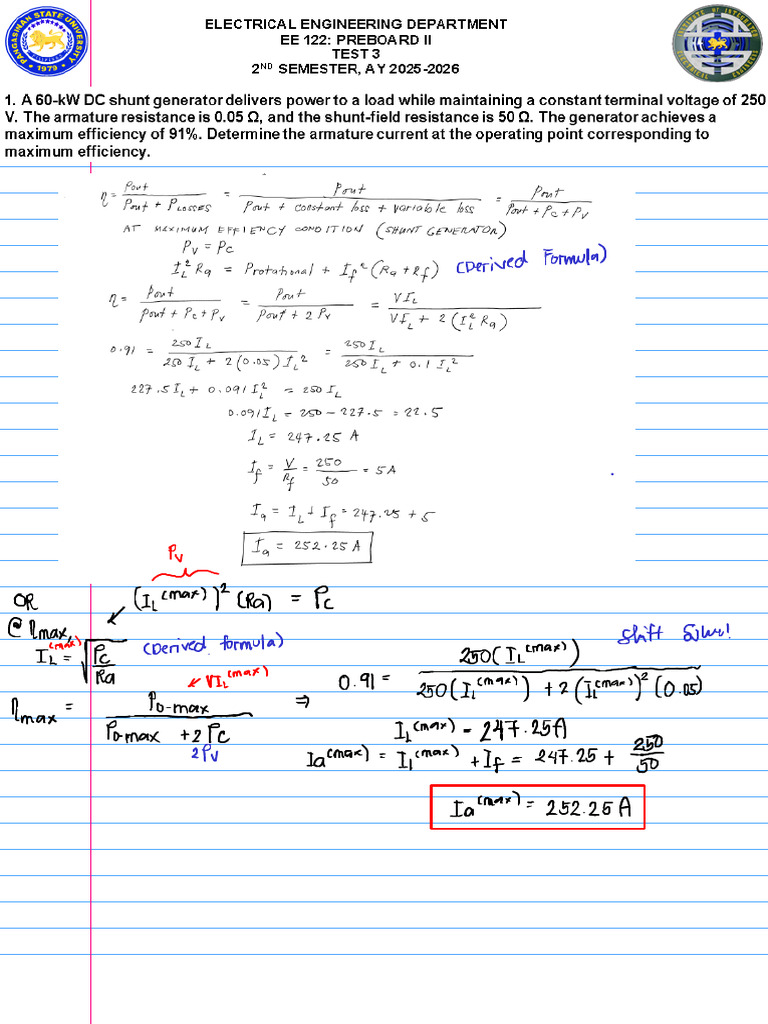 ELECTRICAL ENGINEERING DEPARTMENT
EE 122: PREBOARD II
TEST 3
2ND SEMESTER, AY 2025-2026
PANGASINAN STATE UNIVERSITY
1979
1. A 60-kW DC shunt generator delivers power to a load while maintaining a constant terminal voltage of 250
V. The armature resistance is 0.05 Ω, and the shunt-field resistance is 50 Ω. The generator achieves a
maximum efficiency of 91%. Determine the armature current at the operating point corresponding to
maximum efficiency.
η = Pout / (Pout + PLOSSES) = Pout / (Pout + constant loss + variable loss) = Pout / (Pout + Pc + Pv)
AT MAXIMUM EFFIENCY CONDITION (SHUNT GENERATOR)
Pv = Pc
I_L² Ra = Protational + I_f² (Ra + Rf) (Derived Formula)
η = Pout / (Pout + Pc + Pv) = Pout / (Pout + 2 Pv) = VI_L / (VI_L + 2 (I_L² Ra))
0.91 = 250 I_L / (250 I_L + 2 (0.05) I_L²) = 250 I_L / (250 I_L + 0.1 I_L²)
227.5 I_L + 0.091 I_L² = 250 I_L
0.091 I_L = 250 - 227.5 = 22.5
I_L = 247.25 A
I_f = V / Rf = 250 / 50 = 5A
Ia = I_L + I_f = 247.25 + 5
Ia = 252.25 A
Pv
OR (I_L^(max))² (Ra) = Pc
@ ηmax,
I_L^(max) = √(Pc / Ra) (Derived formula)
shift Solve!
VI_L^(max)
ηmax = Po-max / (Po-max + 2Pc) ⇒ 0.91 = 250(I_L^(max)) / (250(I_L^(max)) + 2(I_L^(max))² (0.05))
2Pv
I_L^(max) = 247.25A
Ia^(max) = I_L^(max) + I_f = 247.25 + 250 / 50
Ia^(max) = 252.25 A